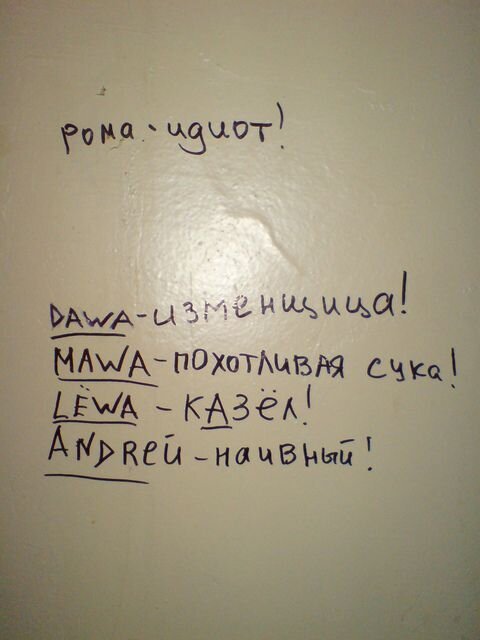 рома - идиот!
DAWA-изменщица!
MAWA-ПОХОТЛИВАЯ сука!
LЁWA - КАЗЁЛ!
ANDREЙ - наивный!